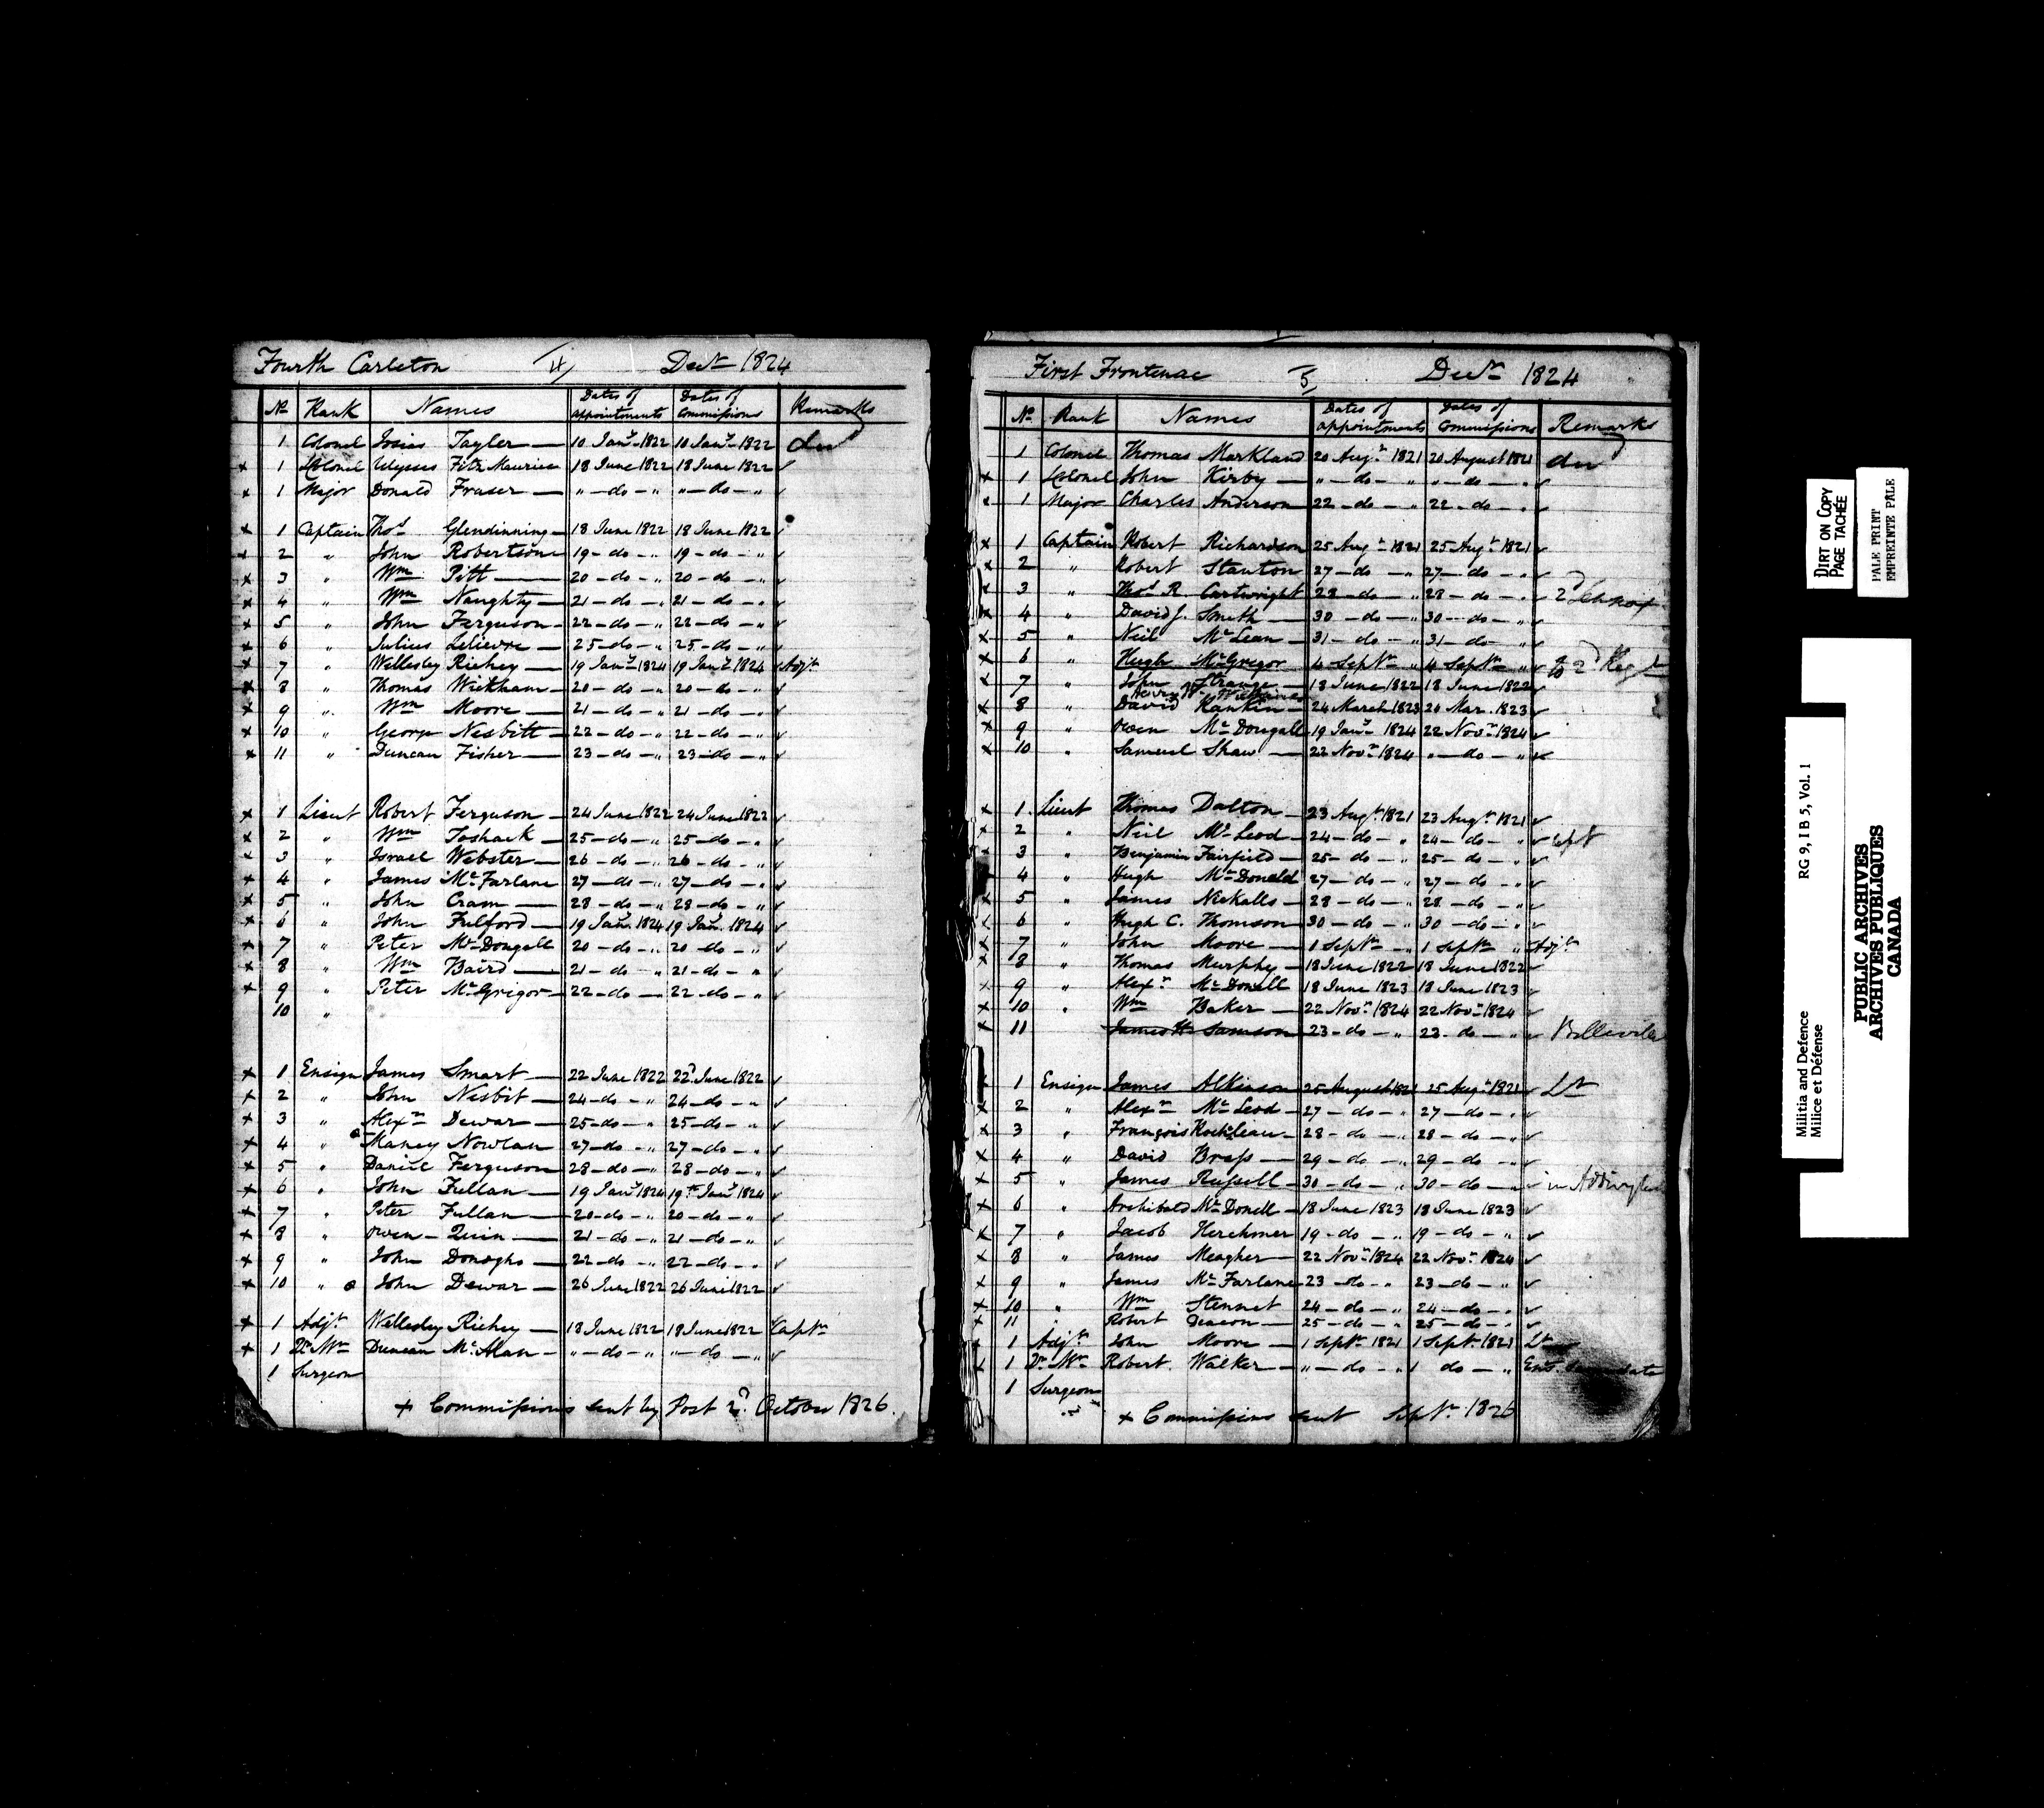 Fourth Carleton 4 Decr 1824
No Rank Names Dates of appointments Dates of Commissions Remarks
1 Colonel Josias Tayler — 10 Jany 1822 10 Jany 1822
x 1 Lt Colonel Ulysses Fitz Maurice 18 June 1822 18 June 1822 ✓
x 1 Major Donald Fraser — " — do — " " — do — " ✓
x 1 Captain Thos Glendinning — 18 June 1822 18 June 1822
x 2 " John Robertson 19 — do — " 19 — do — " ✓
x 3 " Wm Pitt — 20 — do — " 20 — do — " ✓
x 4 " Wm Naughty — 21 — do — " 21 — do — " ✓
x 5 " John Ferguson — 22 — do — " 22 — do — " ✓
x 6 " Julius Lelievre — 25 — do — " 25 — do — " ✓
x 7 " Wellesley Richey — 19 Jany 1824 19 Jany 1824 Adjt
x 8 " Thomas Wickham — 20 — do — " 20 — do — " ✓
x 9 " Wm Moore — 21 — do — " 21 — do — " ✓
x 10 " George Nesbitt — 22 — do — " 22 — do — " ✓
x 11 " Duncan Fisher — 23 — do — " 23 — do — " ✓
x 1 Lieut Robert Ferguson — 24 June 1822 24 June 1822 ✓
x 2 " Wm Toshack — 25 — do — " 25 — do — " ✓
x 3 " Israel Webster — 26 — do — " 26 — do — " ✓
x 4 " James McFarlane 27 — do — " 27 — do — " ✓
x 5 " John Cram — 28 — do — " 28 — do — " ✓
x 6 " John Fulford — 19 Jany 1824 19 Jany 1824 ✓
x 7 " Peter McDougall 20 — do — " 20 — do — " ✓
x 8 " Wm Baird — 21 — do — " 21 — do — " ✓
x 9 " Peter McGrigor — 22 — do — " 22 — do — " ✓
10 "
x 1 Ensign James Smart — 22 June 1822 22d June 1822 ✓
x 2 " John Nesbit — 24 — do — " 24 — do — " ✓
x 3 " Alexr Dewar — 25 — do — " 25 — do — " ✓
x 4 " Maney Nowlan 27 — do — " 27 — do — " ✓
x 5 " Daniel Ferguson 28 — do — " 28 — do — " ✓
x 6 " John Fullan — 19 Jany 1824 19th Jany 1824 ✓
x 7 " Peter Fullan — 20 — do — " 20 — do — " ✓
x 8 " Owen Quin — 21 — do — " 21 — do — " ✓
x 9 " John Donoghs — 22 — do — " 22 — do — " ✓
x 10 " John Dewar — 26 June 1822 26 June 1822 ✓
x 1 Adjt Wellesley Richey — 18 June 1822 18 June 1822 Captn
x 1 Qr Mr Duncan McAlan — " — do — " " — do — " ✓
1 Surgeon
+ Commissions sent by Post 2d October 1826.
First Frontenac 5 Decr 1824
No Rank Names Dates of appointments Dates of Commissions Remarks
1 Colonel Thomas Markland 20 Augt 1821 20 August 1821
x 1 Lt Colonel John Kirby — " — do — " " — do — " ✓
x 1 Major Charles Anderson 22 — do — " 22 — do — " ✓
x 1 Captain Robert Richardson 25 Augt 1821 25 Augt 1821 ✓
x 2 " Robert Stanton 27 — do — " 27 — do — " ✓
x 3 " Thos R Cartwright 28 — do — " 28 — do — " ✓ 2d
x 4 " David J. Smith — 30 — do — " 30 — do — " ✓
x 5 " Neil McLean — 31 — do — " 31 — do — " ✓
x 6 " Hugh McGregor 4 Septr " 4 Septr " ✓ 2d Regt
x 7 " John Strange — 18 June 1822 18 June 1822 ✓
x 8 " David Rankin — 24 March 1823 24 Mar. 1823 ✓
x 9 " Owen McDougall 19 Jany 1824 22 Novr 1824 ✓
x 10 " Samuel Shaw — 22 Novr 1824 " — do — " ✓
x 1 Lieut Thomas Dalton — 23 Augt 1821 23 Augt 1821 ✓
x 2 " Neil McLeod — 24 — do — " 24 — do — " ✓ left
x 3 " Benjamin Fairfield — 25 — do — " 25 — do — " ✓
4 " Hugh McDonald 27 — do — " 27 — do — " ✓
x 5 " James Nickalls — 28 — do — " 28 — do — " ✓
x 6 " Hugh C. Thomson 30 — do — " 30 — do — " ✓
x 7 " John Moore — 1 Septr — " 1 Septr " Adjt
x 8 " Thomas Murphy — 18 June 1822 18 June 1822 ✓
x 9 " Alexr McDonell 18 June 1823 18 June 1823 ✓
x 10 " Wm Baker — 22 Novr 1824 22 Novr 1824 ✓
x 11 James H Samson 23 — do — " 23 — do — " ✓ Belleville
x 1 Ensign James Atkinson 25 August 1821 25 Augt 1821 ✓ Lt
x 2 " Alexr McLeod — 27 — do — " 27 — do — " ✓
x 3 " François Rockleau — 28 — do — " 28 — do — " ✓
x 4 " David Brass — 29 — do — " 29 — do — " ✓
x 5 " James Russell — 30 — do — " 30 — do — " ✓ in Addington
x 6 " Archibald McDonell — 18 June 1823 18 June 1823 ✓
x 7 " Jacob Herchmer — 19 — do — " 19 — do — " ✓
x 8 " James Meagher — 22 Novr 1824 22 Novr 1824 ✓
x 9 " James McFarlane — 23 — do — " 23 — do — " ✓
x 10 " Wm Stennet — 24 — do — " 24 — do — " ✓
x 11 " Robert Deacon — 25 — do — " 25 — do — " ✓
x 1 Adjt John Moore — 1 Septr 1821 1 Septr 1821 Lt
x 1 Qr Mr Robert Walker — " — do — " 1 do — " Ens
1 Surgeon
+ Commissions sent Septr 1826
DIRT ON COPY
PAGE TACHÉE
PALE PRINT
EMPREINTE PÂLE
Militia and Defence RG 9, I B 5, Vol. 1
Milice et Défense
PUBLIC ARCHIVES
ARCHIVES PUBLIQUES
CANADA